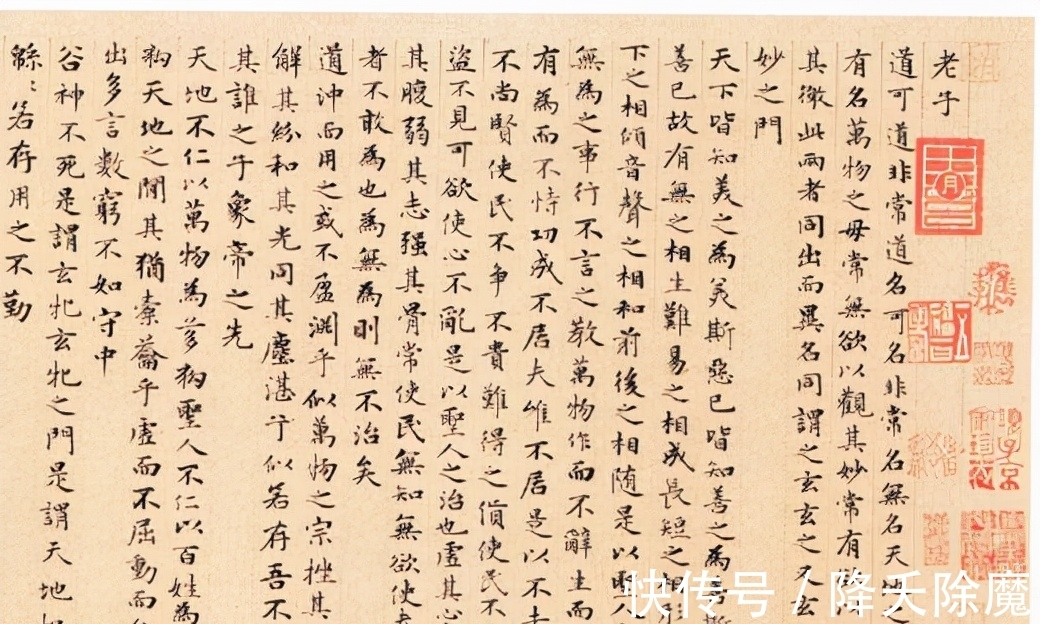 老子
道可道非常道名可名非常名無名天地之
有名萬物之母常無欲以觀其妙常有欲
其徼此兩者同出而異名同謂之玄玄之又玄
妙之門
天下皆知美之為美斯惡已皆知善之為善斯
善已故有無之相生難易之相成長短之相形
下之相傾音聲之相和前後之相随是以聖人
無為之事行不言之教萬物作而不辭生而
有為而不恃功成不居夫惟不居是以不去
不尚賢使民不争不貴難得之貨使民不
盜不見可欲使心不亂是以聖人之治也虛其心
其腹弱其志强其骨常使民無知無欲使夫
者不敢為也為無為則無不治矣
道沖而用之或不盈淵乎似萬物之宗挫其
解其紛和其光同其塵湛兮似若存吾不
其誰之子象帝之先
天地不仁以萬物為芻狗聖人不仁以百姓為
狗天地之間其猶橐籥乎虛而不屈動而
出多言數窮不如守中
谷神不死是謂玄牝玄牝之門是謂天地
緜〻若存用之不勤
快传号 / 降夭除魔